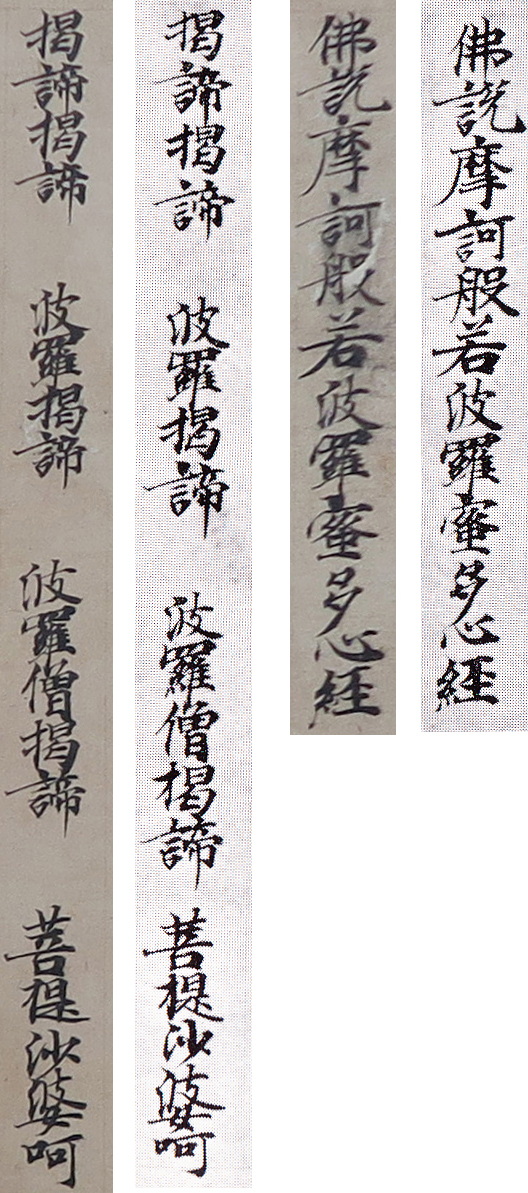 佛説摩訶般若波羅蜜多心經
佛説摩訶般若波羅蜜多心經
揭諦揭諦 波羅揭諦 波羅僧揭諦 菩提沙婆呵
揭諦揭諦 波羅揭諦 波羅僧揭諦 菩提沙婆呵